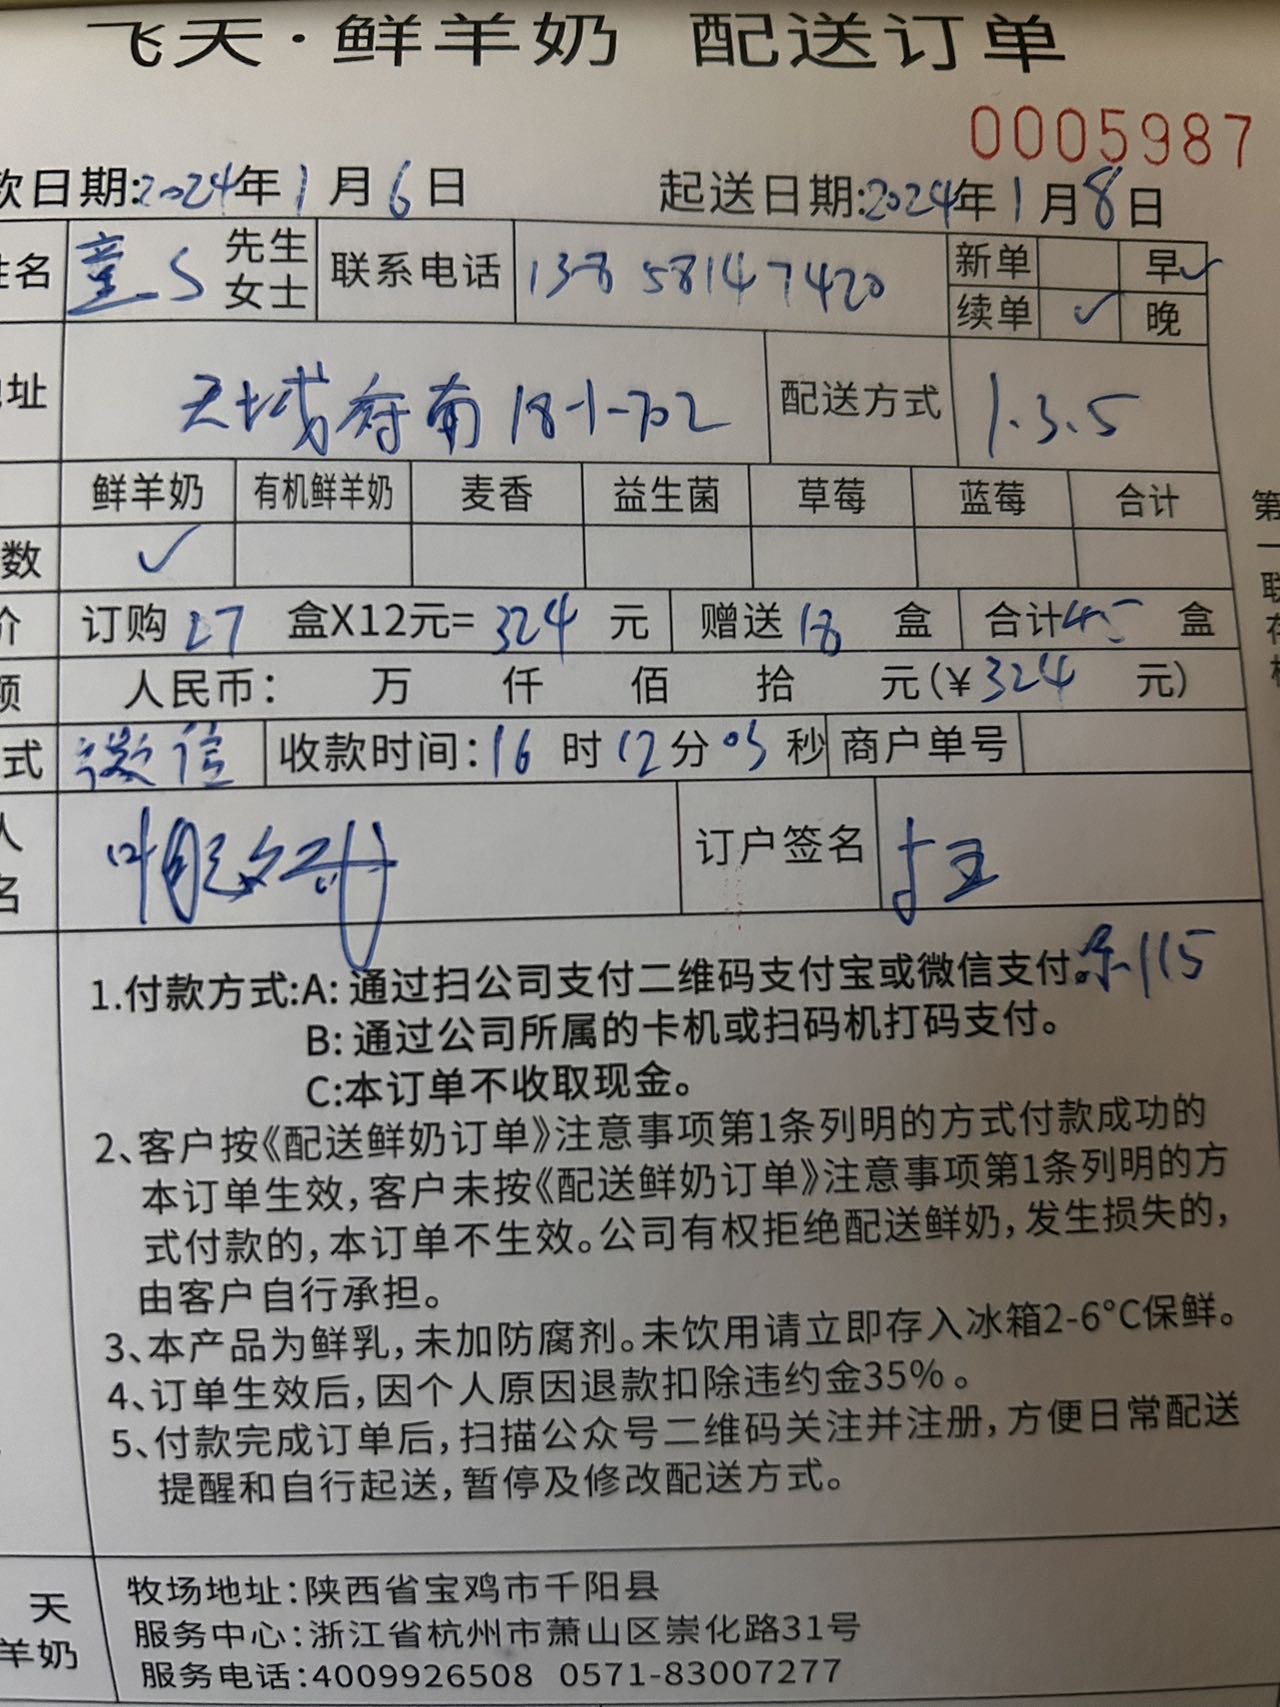 飞天·鲜羊奶 配送订单
0005987
款日期:2024年1月6日 起送日期:2024年1月8日
姓名 童S 先生 女士 联系电话 13858147420 新单 早✓
续单 ✓ 晚
址 天城府南18-1-702 配送方式 1.3.5
鲜羊奶 有机鲜羊奶 麦香 益生菌 草莓 蓝莓 合计
数 ✓
价 订购27盒X12元=324元 赠送18盒 合计45盒
额 人民币: 万 仟 佰 拾 元(¥324 元)
式 微信 收款时间:16时12分03秒 商户单号
人
名 订户签名
余115
1.付款方式:A: 通过扫公司支付二维码支付宝或微信支付。
B: 通过公司所属的卡机或扫码机打码支付。
C:本订单不收取现金。
2、客户按《配送鲜奶订单》注意事项第1条列明的方式付款成功的
本订单生效,客户未按《配送鲜奶订单》注意事项第1条列明的方
式付款的,本订单不生效。公司有权拒绝配送鲜奶,发生损失的,
由客户自行承担。
3、本产品为鲜乳,未加防腐剂。未饮用请立即存入冰箱2-6°C保鲜。
4、订单生效后,因个人原因退款扣除违约金35%。
5、付款完成订单后,扫描公众号二维码关注并注册,方便日常配送
提醒和自行起送,暂停及修改配送方式。
天
羊奶
牧场地址:陕西省宝鸡市千阳县
服务中心:浙江省杭州市萧山区崇化路31号
服务电话:4009926508 0571-83007277
第
一
联
存